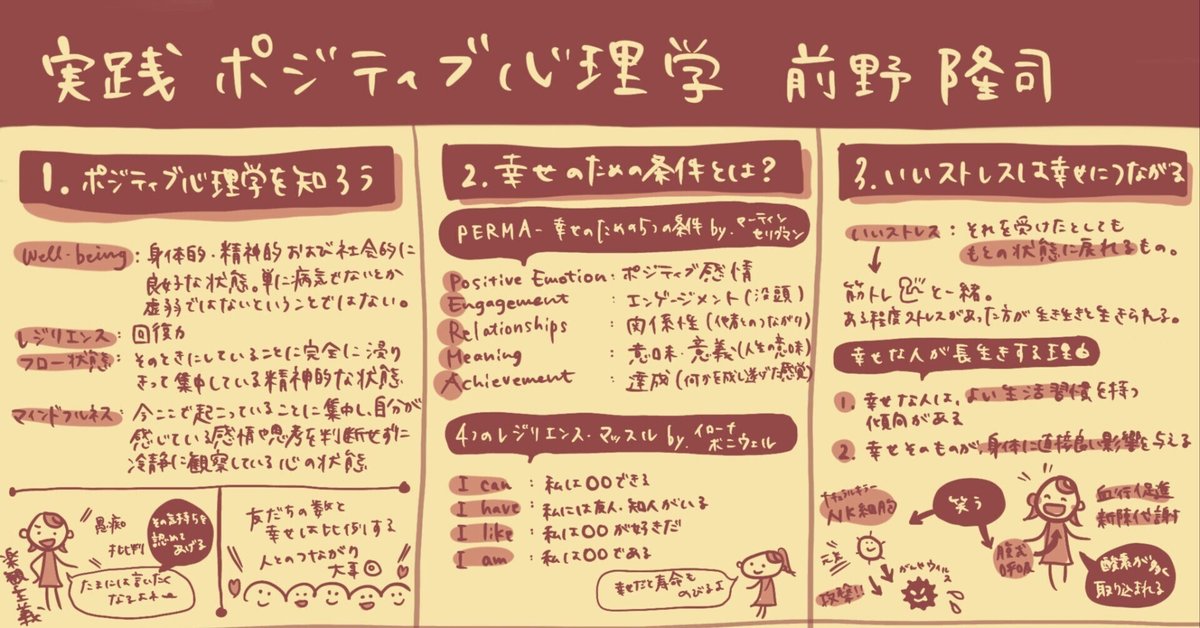 実践 ポジティブ心理学 前野 隆司
1. ポジティブ心理学を知ろう
Well-being : 身体的・精神的および社会的に
良好な状態。単に病気でないとか
虚弱ではないということではない。
レジリエンス : 回復力
フロー状態 : そのときにしていることに完全に浸り
きって集中している精神的な状態
マインドフルネス : 今ここで起こっていることに集中し、自分が
感じている感情や思考を判断せずに
冷静に観察している心の状態
楽観主義
愚痴。
その気持ちを
認めてあげる
たまには言いたく
なるよねー
友だちの数と
幸せは比例する
人とのつながり
大事◎
2. 幸せのための条件とは?
PERMA - 幸せのための5つの条件 by. マーティン
セリグマン
Positive Emotion : ポジティブ感情
Engagement : エンゲージメント (没頭)
Relationships : 関係性 (他者とのつながり)
Meaning : 意味・意義 (人生の意味)
Achievement : 達成 (何かを成し遂げた感覚)
4つのレジリエンス・マッスル by. イローナ
ボニウェル
I can : 私は〇〇できる
I have : 私には友人・知人がいる
I like : 私は〇〇が好きだ
I am : 私は〇〇である
幸せだと寿命も
のびるよ
3. いいストレスは幸せにつながる
いいストレス : それを受けたとしても
もとの状態に戻れるもの。
筋トレ と一緒。
ある程度ストレスがあった方が生き生きと生きられる。
幸せな人が長生きする理由
1. 幸せな人は、よい生活習慣を持つ
傾向がある
2. 幸せそのものが、身体に直接良い影響を与える
ナチュラルキラー
NK細胞
笑う
血行促進
新陳代謝
元気
がんやウイルス
攻撃!!
腹式
呼吸
酸素が多く
取り込まれる